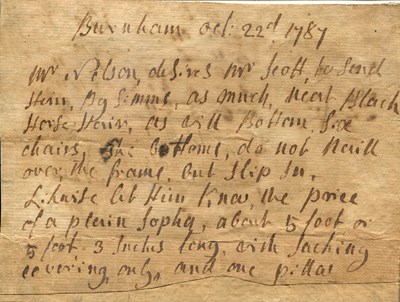 Burnham Oct: 22d 1787
Mr Nelson, desires Mr Scott, to Send
Him, By Simms, as much, Neat Black
Horse Hair, as will Bottom Six
chairs, The Bottoms, do not Naill
over, the frame, But Slip In,
Likwise let Him Know, the price
of a plain Sopha, about 5 foot or
5 foot. 3 Inches long, with Sacking
covering, only, and one pillar